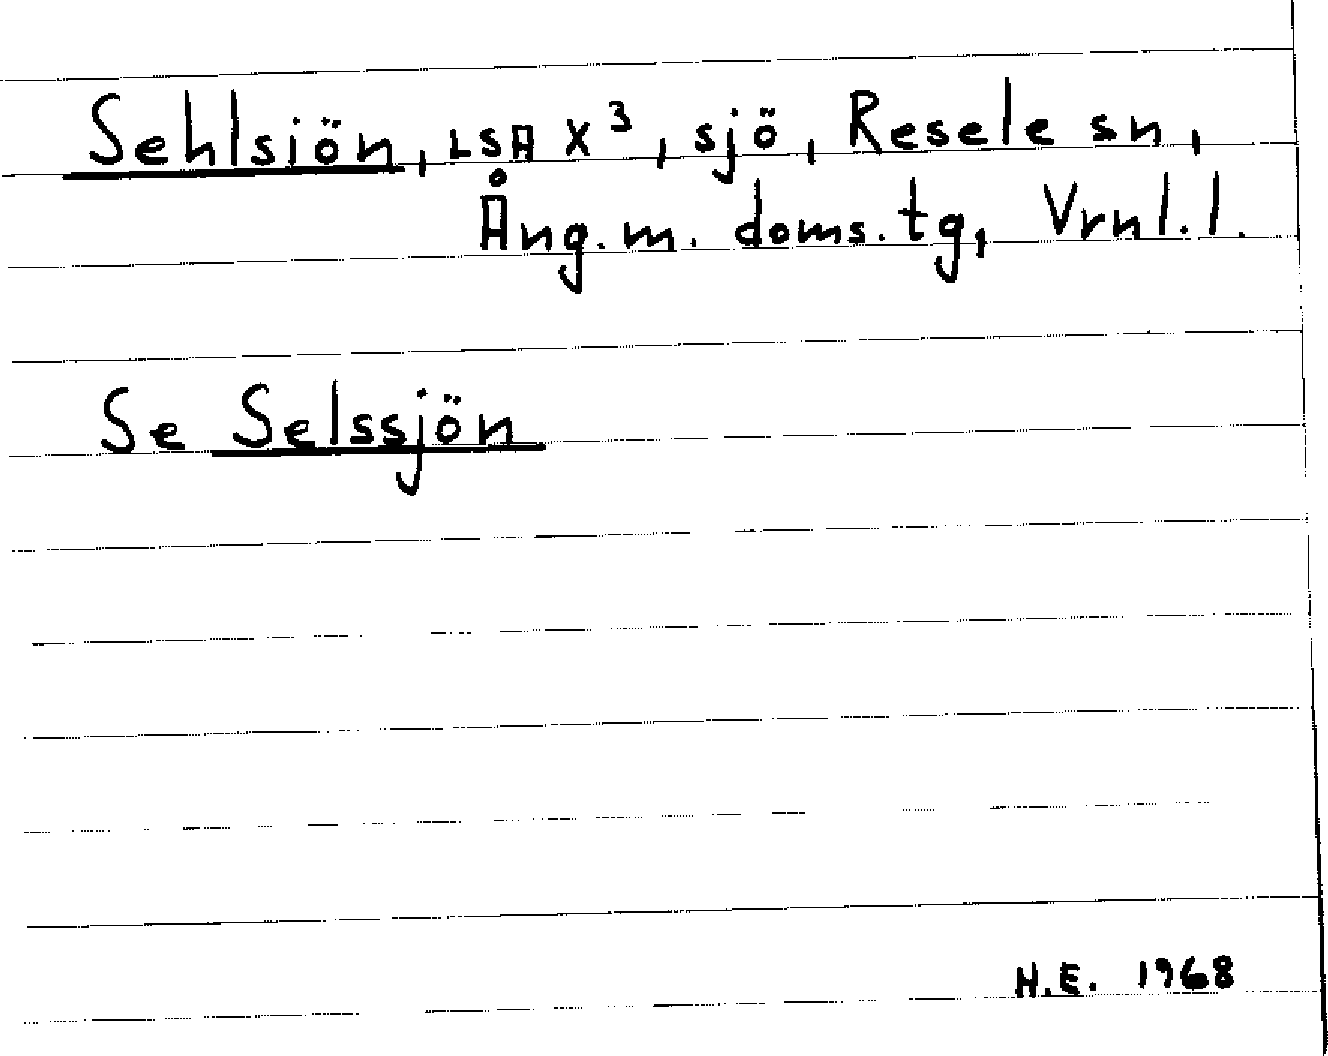 Sehlsiön, LSA X³, sjö, Resele sn,
Ång.m. doms.tg, Vrnl.l.
Se Selssjön
H.E. 1968